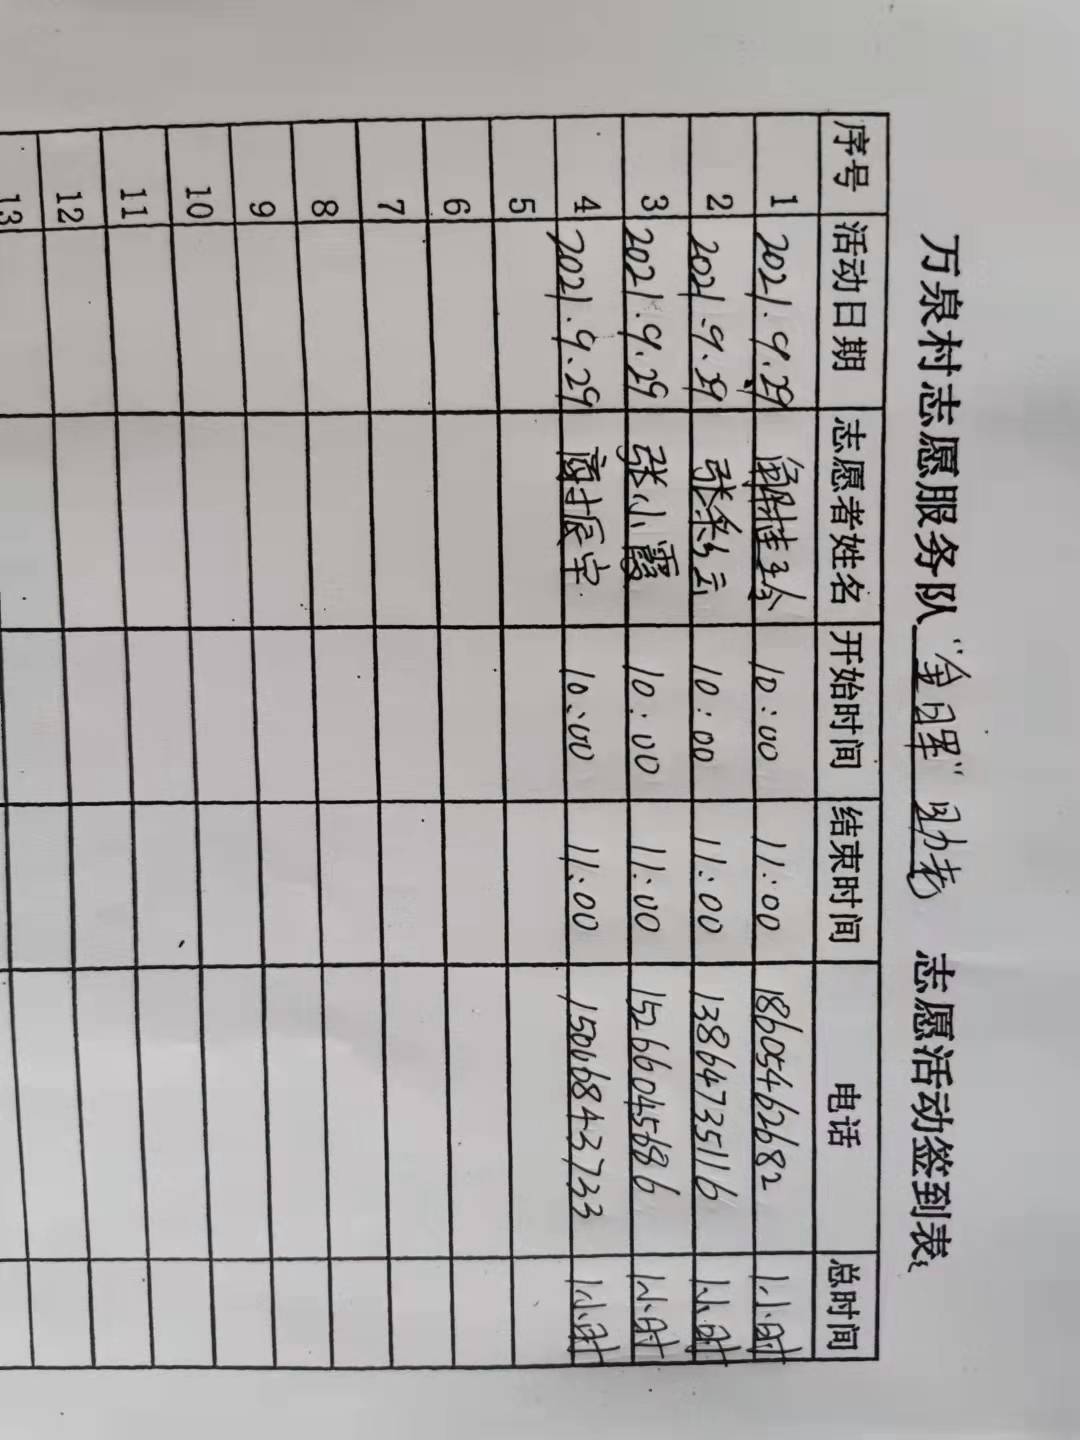 万泉村志愿服务队“金晖”助老 志愿活动签到表
序号 活动日期 志愿者姓名 开始时间 结束时间 电话 总时间
1 2021.9.29 解桂玲 10:00 11:00 18605462682 1小时
2 2021.9.29 张彩云 10:00 11:00 13864735116 1小时
3 2021.9.29 张小霞 10:00 11:00 15266045686 1小时
4 2021.9.29 商振宇 10:00 11:00 15066843733 1小时
5
6
7
8
9
10
11
12
13